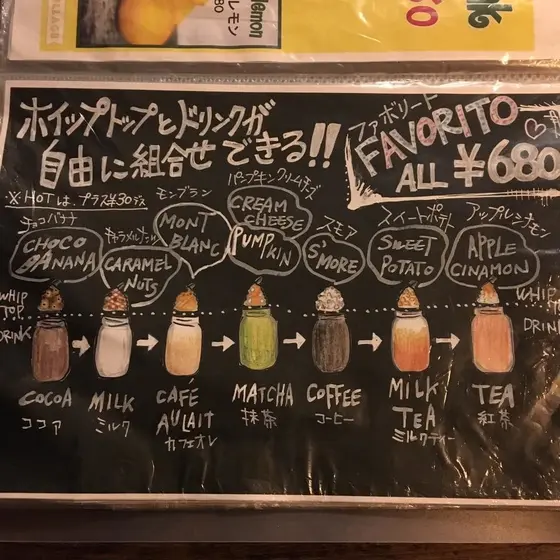 レモン
ホイップトップとドリンクが
自由に組合せできる!!
ファボリート
FAVORITO
ALL ¥680
※HOTは、プラス¥30デス
チョコバナナ
CHOCO
BANANA
キャラメルナッツ
CARAMEL
NUTS
モンブラン
MONT
BLANC
パンプキンクリームチーズ
CREAM
CHEESE
PUMPKIN
スモア
S'MORE
スイートポテト
SWEET
POTATO
アップルシナモン
APPLE
CINAMON
WHIP
TOP
DRINK
WHIP
TOP
DRINK
COCOA
ココア
MILK
ミルク
CAFÉ
AULAIT
カフェオレ
MATCHA
抹茶
COFFEE
コーヒー
MILK
TEA
ミルクティー
TEA
紅茶